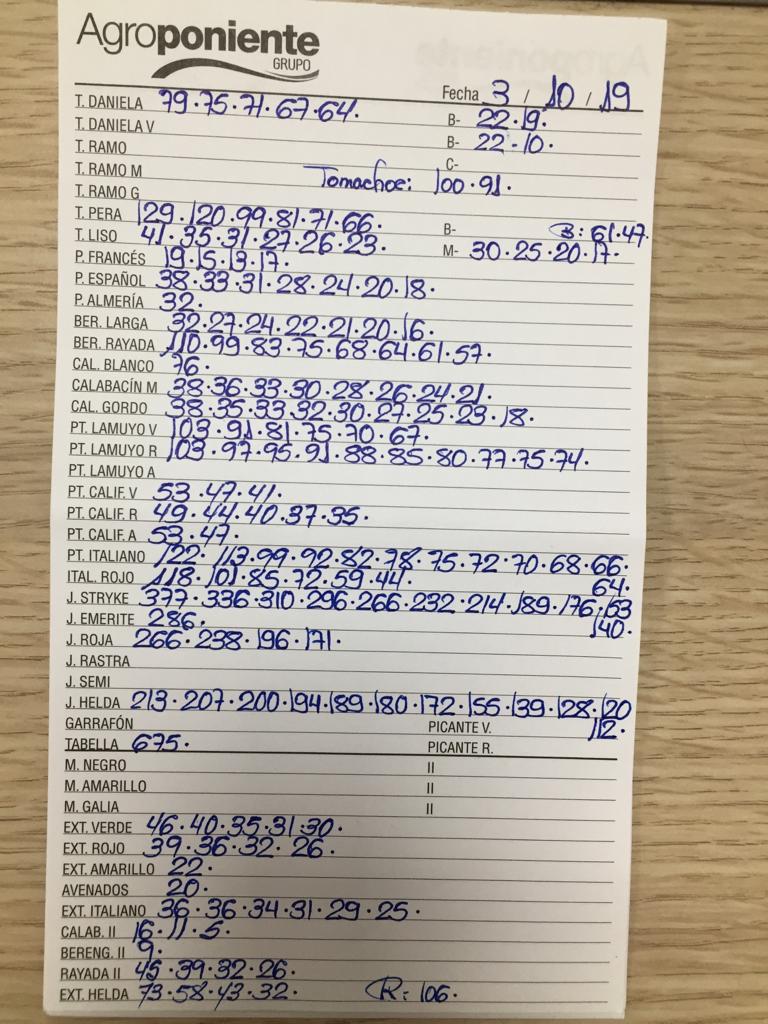 Agroponiente
GRUPO
Fecha 3 / 10 / 19
T. DANIELA 79.75.71.67.64. B- 22.19.
T. DANIELA V B- 22.10.
T. RAMO C-
T. RAMO M Tomachoc: 100.91.
T. RAMO G
T. PERA 129.120.99.81.71.66. B- B: 61.47.
T. LISO 41.35.31.27.26.23. M- 30.25.20.17.
P. FRANCÉS 19.15.13.17.
P. ESPAÑOL 38.33.31.28.24.20.18.
P. ALMERÍA 32.
BER. LARGA 32.27.24.22.21.20.16.
BER. RAYADA 110.99.83.75.68.64.61.57.
CAL. BLANCO 76.
CALABACÍN M 38.36.33.30.28.26.24.21.
CAL. GORDO 38.35.33.32.30.27.25.23.18.
PT. LAMUYO V 103.91.81.75.70.67.
PT. LAMUYO R 103.97.95.91.88.85.80.77.75.74.
PT. LAMUYO A
PT. CALIF. V 53.47.41.
PT. CALIF. R 49.44.40.37.35.
PT. CALIF. A 53.47.
PT. ITALIANO 122.113.99.92.82.78.75.72.70.68.66.
64.
ITAL. ROJO 118.101.85.72.59.44.
J. STRYKE 377.336.310.296.266.232.214.189.176.153
140.
J. EMERITE 286.
J. ROJA 266.238.196.171.
J. RASTRA
J. SEMI
J. HELDA 213.207.200.194.189.180.172.155.139.128.120
112.
GARRAFÓN PICANTE V.
TABELLA 675. PICANTE R.
M. NEGRO II
M. AMARILLO II
M. GALIA II
EXT. VERDE 46.40.35.31.30.
EXT. ROJO 39.36.32.26.
EXT. AMARILLO 22.
AVENADOS 20.
EXT. ITALIANO 36.36.34.31.29.25.
CALAB. II 16.11.5.
BERENG. II 9.
RAYADA II 45.39.32.26.
EXT. HELDA 73.58.43.32. R: 106.